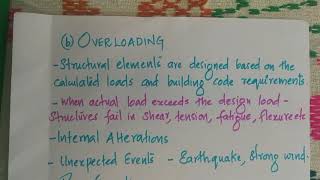 (b) OVERLOADING
- Structural elements are designed based on the
calculated loads and building code requirements.
- When actual load exceeds the design load -
Structures fail in shear, tension, fatigue, flexure etc
- Internal Alterations
- Unexpected Events - Earthquake, Strong wind.